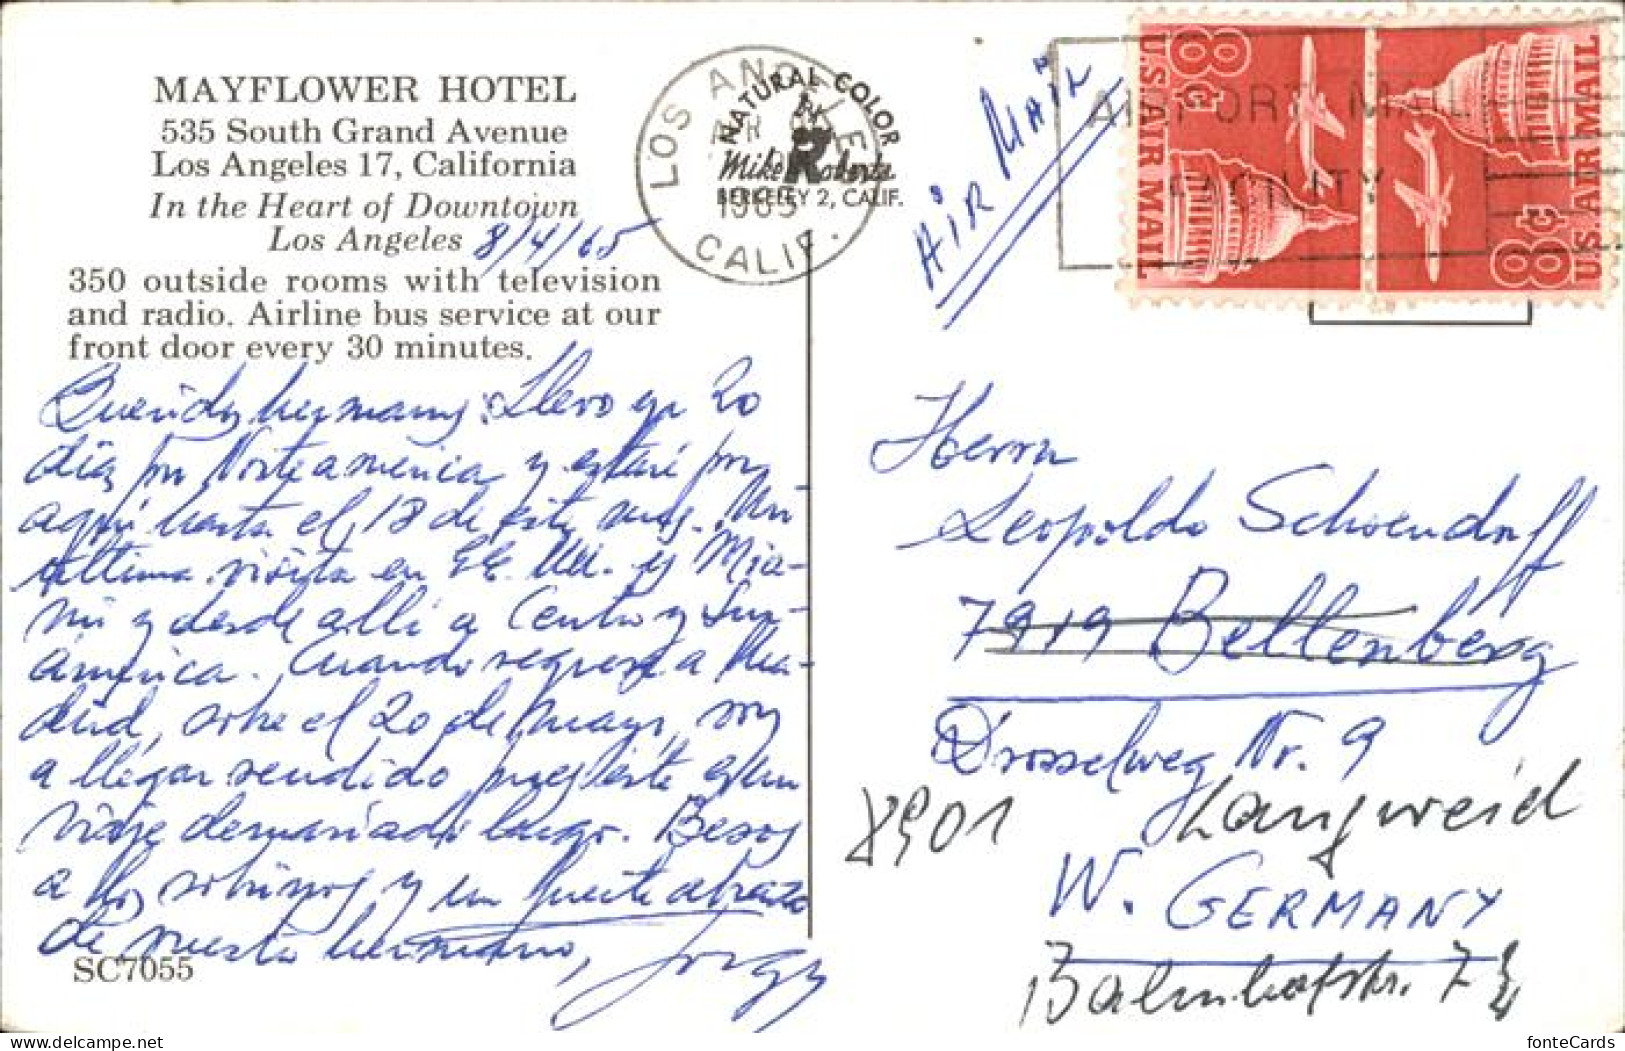 MAYFLOWER HOTEL
535 South Grand Avenue
Los Angeles 17, California
In the Heart of Downtown
Los Angeles 8/4/65
350 outside rooms with television
and radio. Airline bus service at our
front door every 30 minutes.
Queridos hermanos: Llevo ya 20
días por Norteamerica y estaré por
aquí hasta el 18 de este mes. Mi
última visita en EE. UU. es Mia-
mi y desde allí a Centro y Sur-
américa. Cuando regrese a Ma-
drid, sobre el 20 de mayo, voy
a llegar rendido pues este es un
viaje demasiado largo. Besos
a los sobrinos y un fuerte abrazo
de vuestro hermano,
Jorge
SC7055
LOS ANGELES
CALIF.
1965
NATURAL COLOR
by
Mike Roberts
BERKELEY 2, CALIF.
AIR MAIL
AIRPORT MAIL
FACILITY
8c
U.S. AIR MAIL
8c
U.S. AIR MAIL
Herrn
Leopoldo Schoendorff
7919 Bellenberg
Drosselweg Nr. 9
8901 Langweid
W. GERMANY
Bahnhofstr. 7
fonteCards